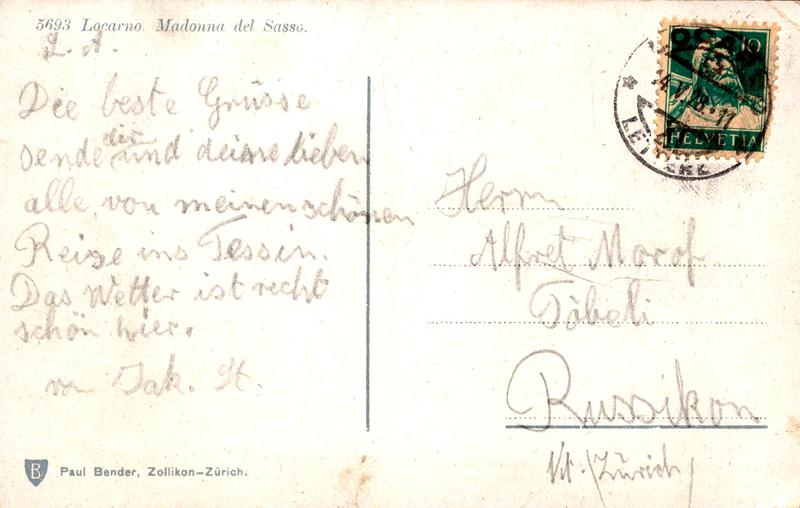 5693 Locarno. Madonna del Sasso.
L. A.
Die beste Grüsse
sende dir und deine lieben
alle, von meinen schönen
Reise ins Tessin.
Das Wetter ist recht
schön hier.
von Jak. St.
Paul Bender, Zollikon-Zürich.
B
10
HELVETIA
Herrn
Alfret Morof
Töbeli
Russikon
Kt. (Zürich)